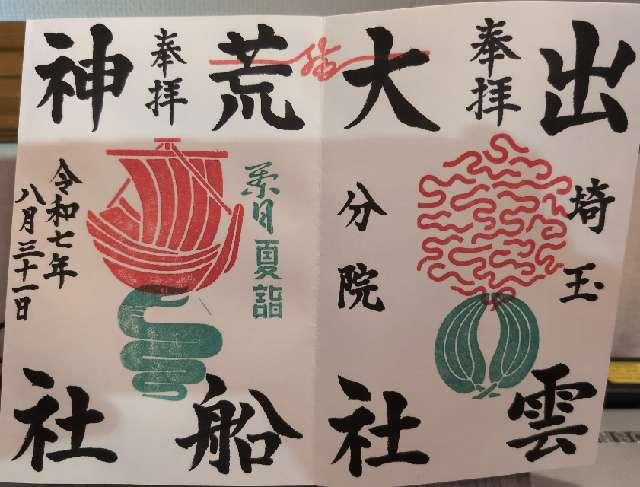 出雲
奉拝
埼玉
大社
分院
結
荒船
葉月夏詣
奉拝
神社
令和七年
八月三十一日